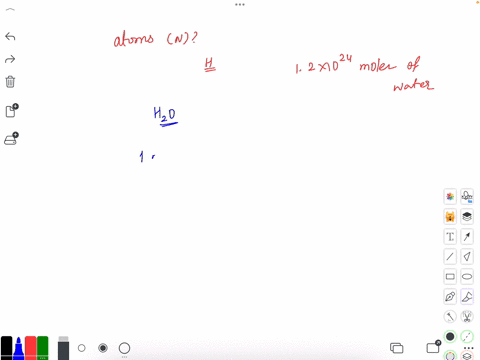 atoms (N)?
H 1.2×10²⁴ moles of
water
H₂O
1